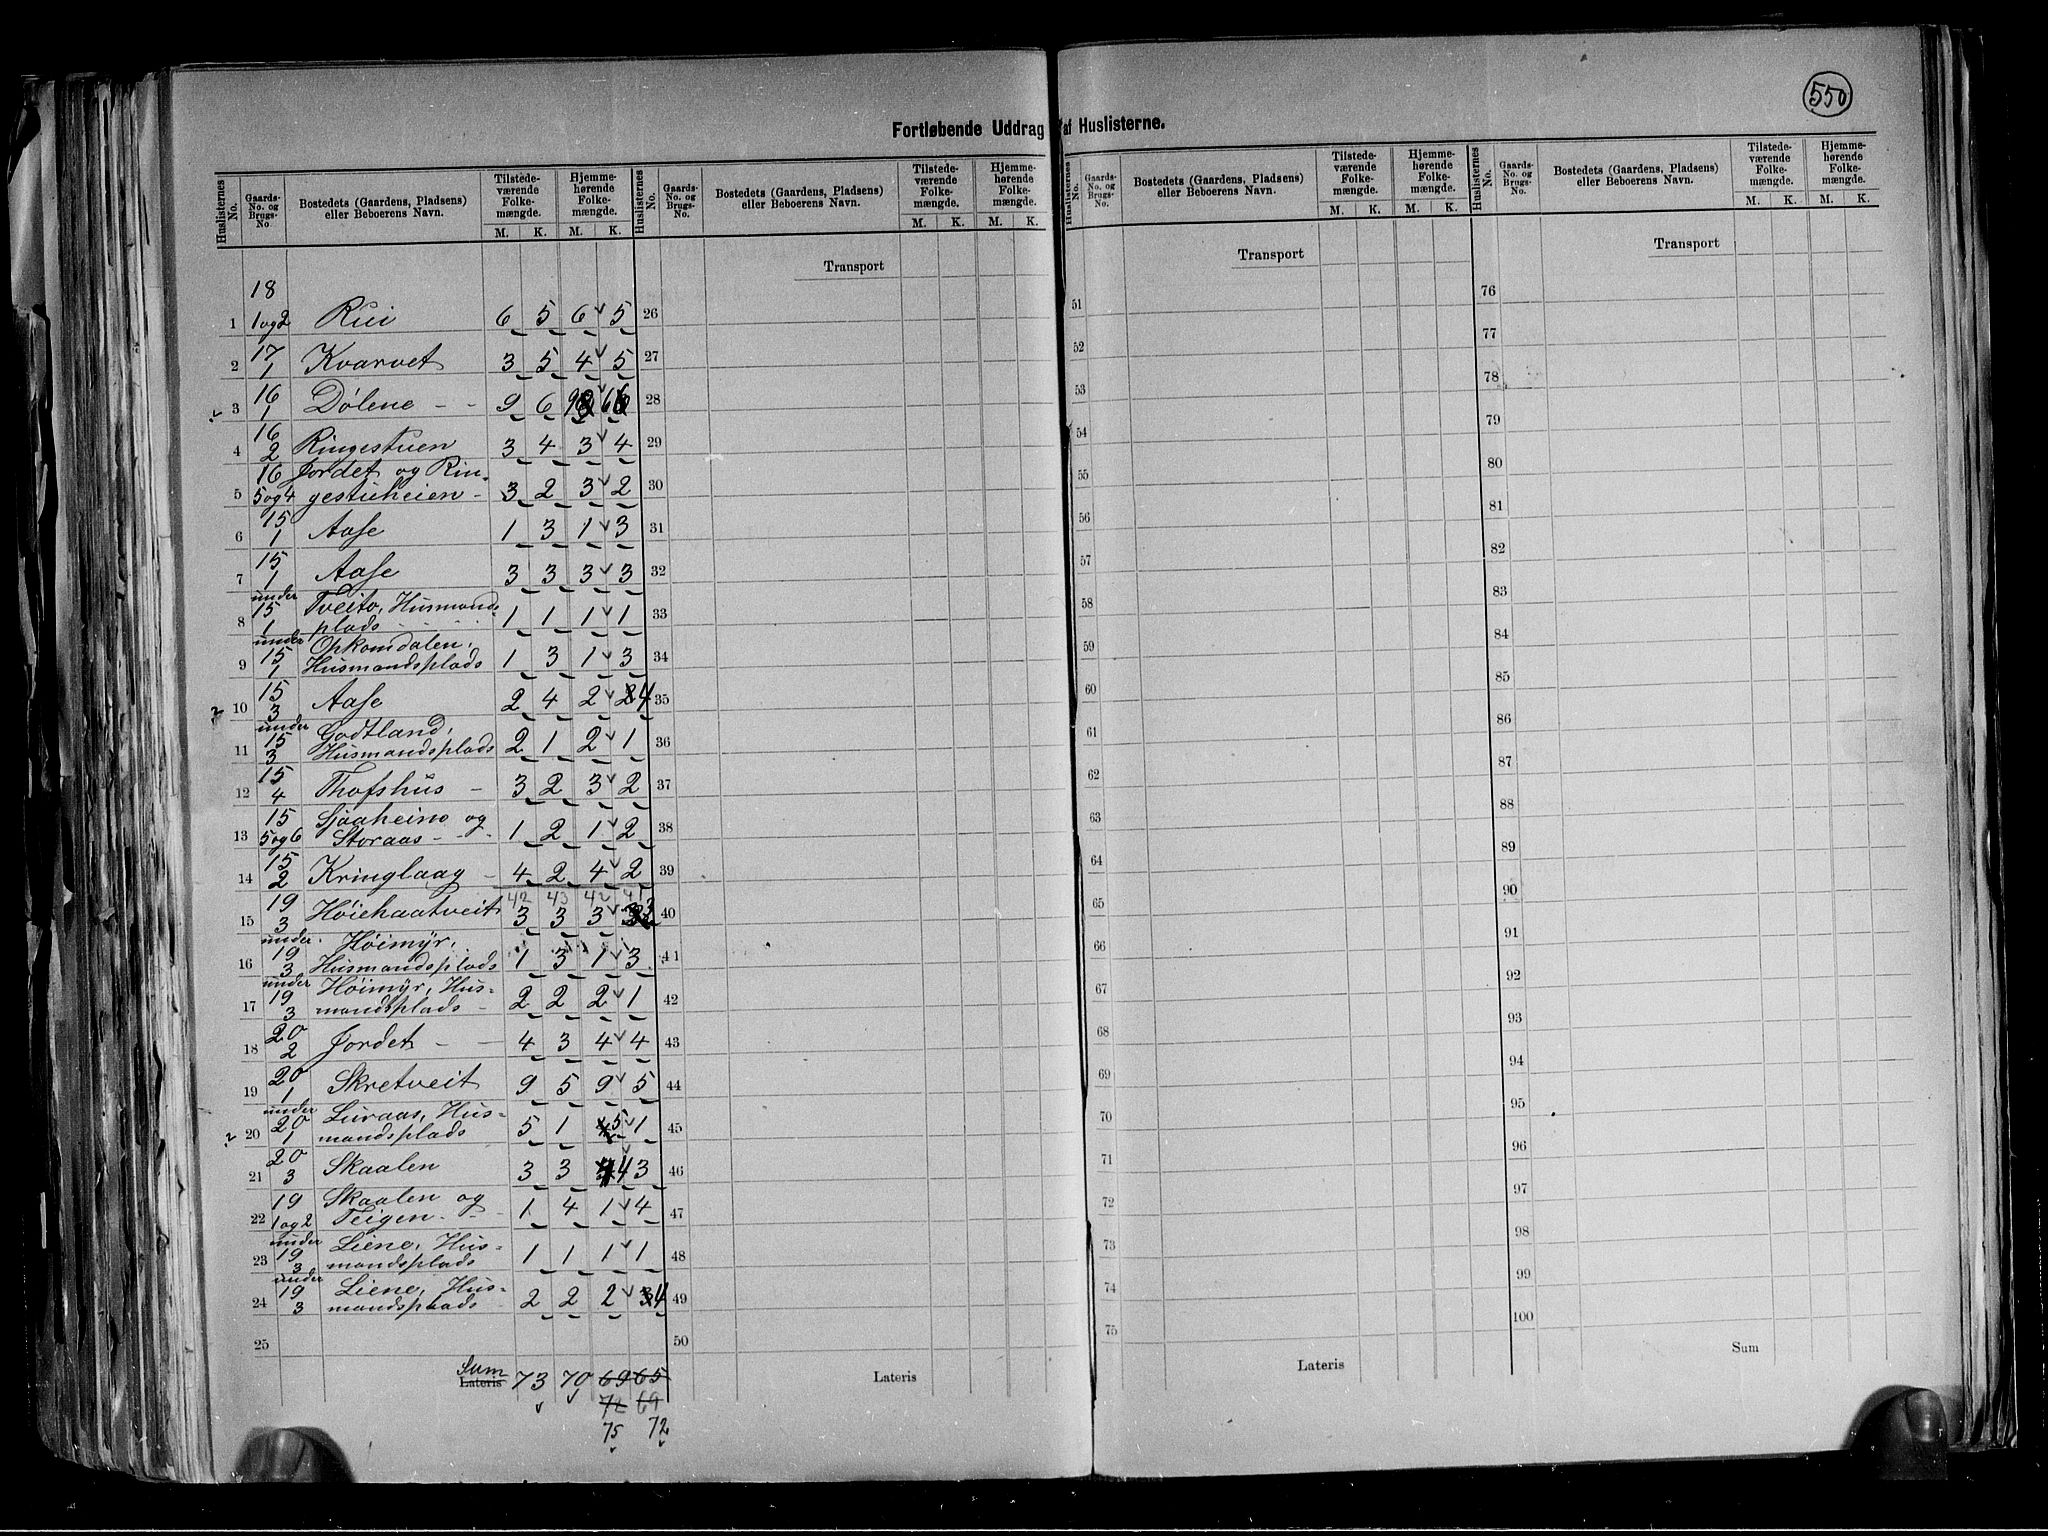 550
Fortløbende Uddrag af Huslisterne.
Huslisternes No. Gaards-No. og Brugs-No Bostedets (Gaardens, Pladsens) eller Beboerens Navn. Tilstede-værende Folke-mængde. Hjemme-hørende Folke-mængde.
M. K. M. K.
Huslisternes No. Gaards-No. og Brugs-No. Bostedets (Gaardens, Pladsens) eller Beboerens Navn. Tilstede-værende Folke-mængde. Hjemme-hørende Folke-mængde.
M. K. M. K.
Transport
18
1 1og2 Rui 6 5 6 5
17
2 1 Kvarvet 3 5 4 5
16
3 1 Dølene - - 9 6 9 6
16
4 2 Ringestuen 3 4 3 4
16 Jordet og Rin-
5 5og4 gestuheien - 3 2 3 2
15
6 1 Aase 1 3 1 3
15
7 1 Aase 3 3 3 3
under Tveito, Husmands-
15
8 1 plads 1 1 1 1
under Opkomdalen,
15
9 1 Husmandsplads 1 3 1 3
15
10 3 Aase 2 4 2 4
under Godtland,
15
11 3 Husmandsplads 2 1 2 1
15
12 4 Thofshus - 3 2 3 2
15 Sjaaheim og
13 5og6 Storaas - - 1 2 1 2
15
14 2 Kringlaag - 4 2 4 2
42 43 42
19
15 3 Høiehaatveit 3 3 3 3
under Høimyr,
19
16 3 Husmandsplads 1 3 1 3
under Høimyr, Hus-
19
17 3 mandsplads - 2 2 2 1
20
18 2 Jordet - - 4 3 4 4
20
19 1 Skretveit 9 5 9 5
under Luraas, Hus-
20
20 1 mandsplads 5 1 5 1
20
21 3 Skaalen 3 3 4 3
19 Skaalen og
22 1og2 Teigen - - 1 4 1 4
under Liene, Hus-
19
23 3 mandsplads 1 1 1 1
under Liene, Hus-
19
24 3 mandsplads 2 2 2 4
25
Sum
Lateris 73 70 69 65
72 69
75 72
26
27
28
29
30
31
32
33
34
35
36
37
38
39
40
41
42
43
44
45
46
47
48
49
50
Lateris
Huslisternes No. Gaards-No. og Brugs-No. Bostedets (Gaardens, Pladsens) eller Beboerens Navn. Tilstede-værende Folke-mængde. Hjemme-hørende Folke-mængde.
M. K. M. K.
Transport
51
52
53
54
55
56
57
58
59
60
61
62
63
64
65
66
67
68
69
70
71
72
73
74
75
Lateris
Huslisternes No. Gaards-No. og Brugs-No. Bostedets (Gaardens, Pladsens) eller Beboerens Navn. Tilstede-værende Folke-mængde. Hjemme-hørende Folke-mængde.
M. K. M. K.
Transport
76
77
78
79
80
81
82
83
84
85
86
87
88
89
90
91
92
93
94
95
96
97
98
99
100
Sum